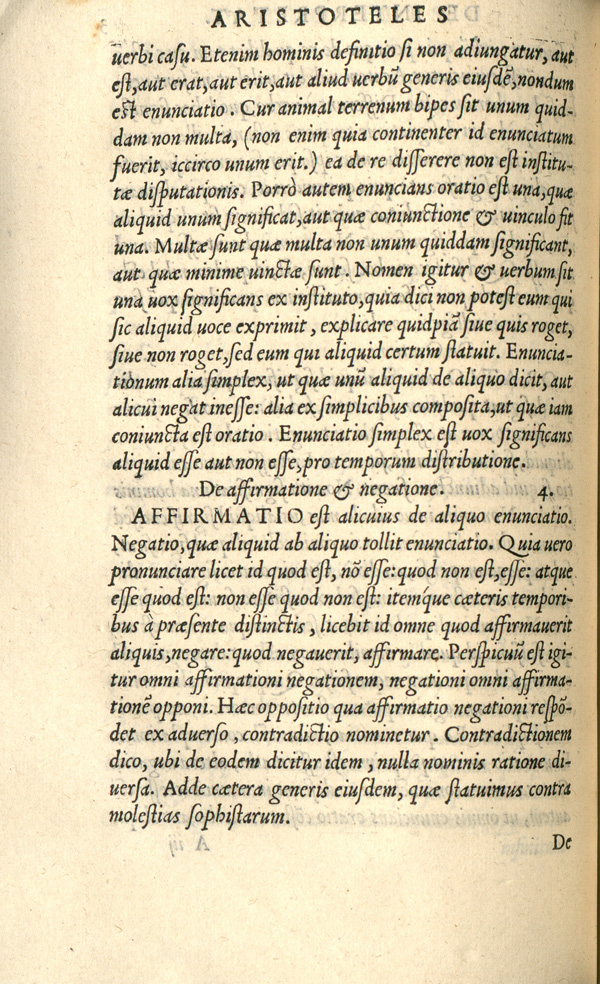 ARISTOTELES
uerbi casu. Etenim hominis definitio si non adiungatur, aut
est, aut erat, aut erit, aut aliud uerbū generis eiusdē, nondum
est enunciatio. Cur animal terrenum bipes sit unum quid-
dam non multa, (non enim quia continenter id enunciatum
fuerit, iccirco unum erit.) ea de re disserere non est institu-
tæ disputationis. Porrò autem enuncians oratio est una, quæ
aliquid unum significat, aut quæ coniunctione & uinculo fit
una. Multæ sunt quæ multa non unum quiddam significant,
aut quæ minime uinctæ sunt. Nomen igitur & uerbum sit
una uox significans ex instituto, quia dici non potest eum qui
sic aliquid uoce exprimit, explicare quidpiā siue quis roget,
siue non roget, sed eum qui aliquid certum statuit. Enuncia-
tionum alia simplex, ut quæ unū aliquid de aliquo dicit, aut
alicui negat inesse: alia ex simplicibus composita, ut quæ iam
coniuncta est oratio. Enunciatio simplex est uox significans
aliquid esse aut non esse, pro temporum distributione.
De affirmatione & negatione. 4.
AFFIRMATIO est alicuius de aliquo enunciatio.
Negatio, quæ aliquid ab aliquo tollit enunciatio. Quia uero
pronunciare licet id quod est, nō esse: quod non est, esse: atque
esse quod est: non esse quod non est: itemq́ue cæteris tempori-
bus à præsente distinctis, licebit id omne quod affirmauerit
aliquis, negare: quod negauerit, affirmare. Perspicuū est igi-
tur omni affirmationi negationem, negationi omni affirma-
tionē opponi. Hæc oppositio qua affirmatio negationi respō-
det ex aduerso, contradictio nominetur. Contradictionem
dico, ubi de eodem dicitur idem, nulla nominis ratione di-
uersa. Adde cætera generis eiusdem, quæ statuimus contra
molestias sophistarum.
De